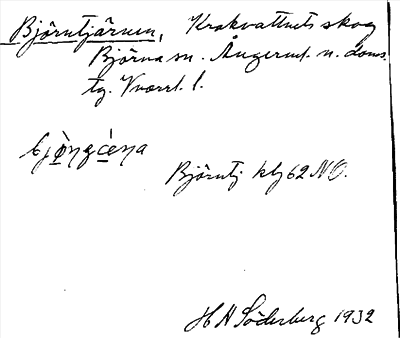 Björntjärnen, Krakvattnets skog
Björna sn. Ångerml. n. doms.
tg. Kvarrl. l.
Björntj kbl 62 NO.
H N Söderberg 1932